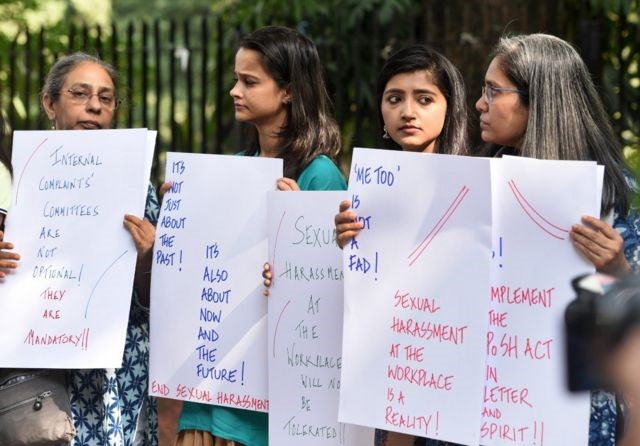 INTERNAL
COMPLAINTS'
COMMITTEES
ARE
NOT
OPTIONAL!
THEY
ARE
MANDATORY!!
IT'S
NOT
JUST
ABOUT
THE
PAST!
IT'S
ALSO
ABOUT
NOW
AND
THE
FUTURE!
END SEXUAL HARASSMENT
HARASSMENT
AT
THE
WORKPLACE
WILL
BE
TOLERATED!
'ME TOO'
IS
A
FAD!
SEXUAL
HARASSMENT
AT THE
WORKPLACE
IS A
REALITY!
THE
ACT
IN
LETTER
AND
SPIRIT!!